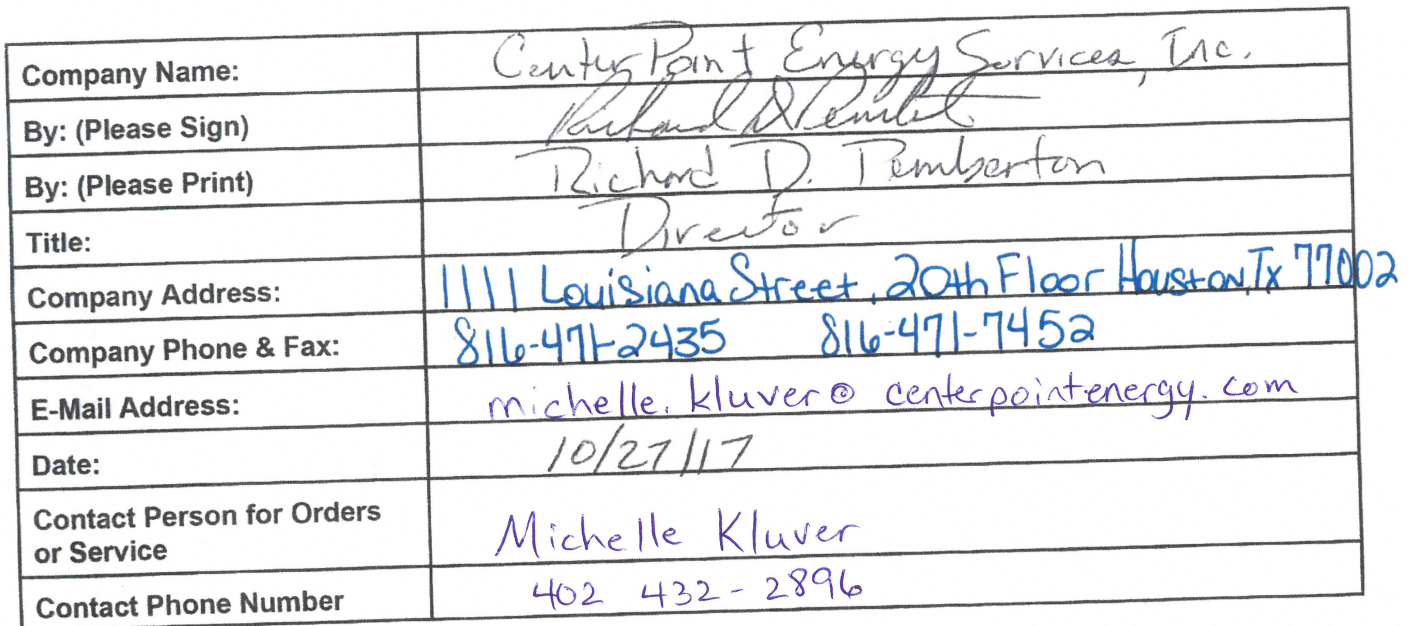 Company Name: CenterPoint Energy Services, Inc.
By: (Please Sign) Richard D Pembert
By: (Please Print) Richard D. Pemberton
Title: Director
Company Address: 1111 Louisiana Street, 20th Floor Houston, Tx 77002
Company Phone & Fax: 816-471-2435 816-471-7452
E-Mail Address: michelle.kluver@centerpointenergy.com
Date: 10/27/17
Contact Person for Orders
or Service Michelle Kluver
Contact Phone Number 402 432-2896